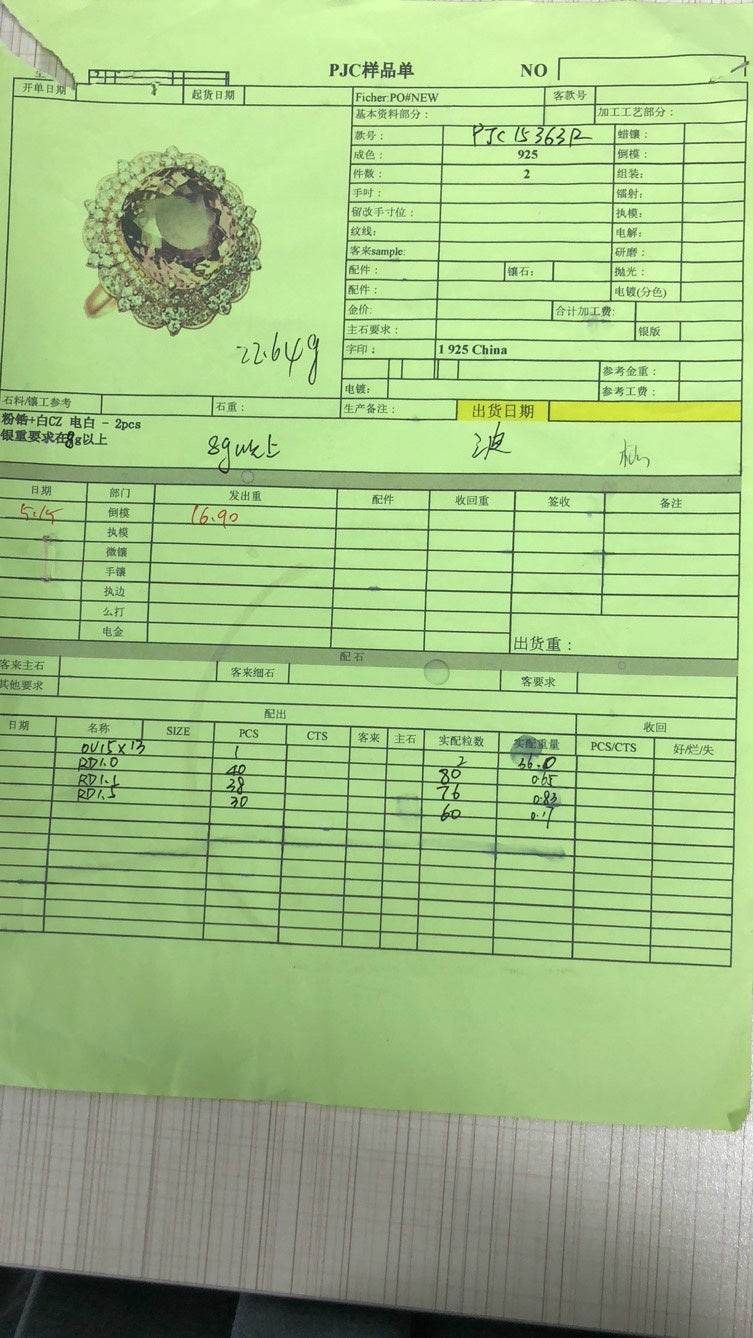 PJC样品单 NO
开单日期 起货日期 Ficher:PO#NEW 客款号
基本资料部分： 加工工艺部分：
款号： PJC15363R 蜡镶：
成色： 925 倒模：
件数： 2 组装：
手寸： 镭射：
留改手寸位： 执模：
纹线： 电解：
客来sample: 研磨：
配件： 镶石： 抛光：
配件： 电镀(分色)
金价: 合计加工费:
主石要求： 银版
字印： 1 925 China
参考金重：
电镀： 参考工费：
22.64g
石料/镶工参考 石重： 生产备注： 出货日期
粉锆+白CZ 电白 - 2pcs
银重要求在8g以上
8g以上
日期 部门 发出重 配件 收回重 签收 备注
5.15 倒模 16.90
执模
微镶
手镶
执边
么打
电金 出货重：
配石
客来主石 客来细石 客要求
其他要求
配出 收回
日期 名称 SIZE PCS CTS 客来 主石 实配粒数 实配重量 PCS/CTS 好/烂/失
OV15×13 1 2 36.0
RD1.0 40 80 0.65
RD1.1 38 76 0.83
RD1.5 30 60